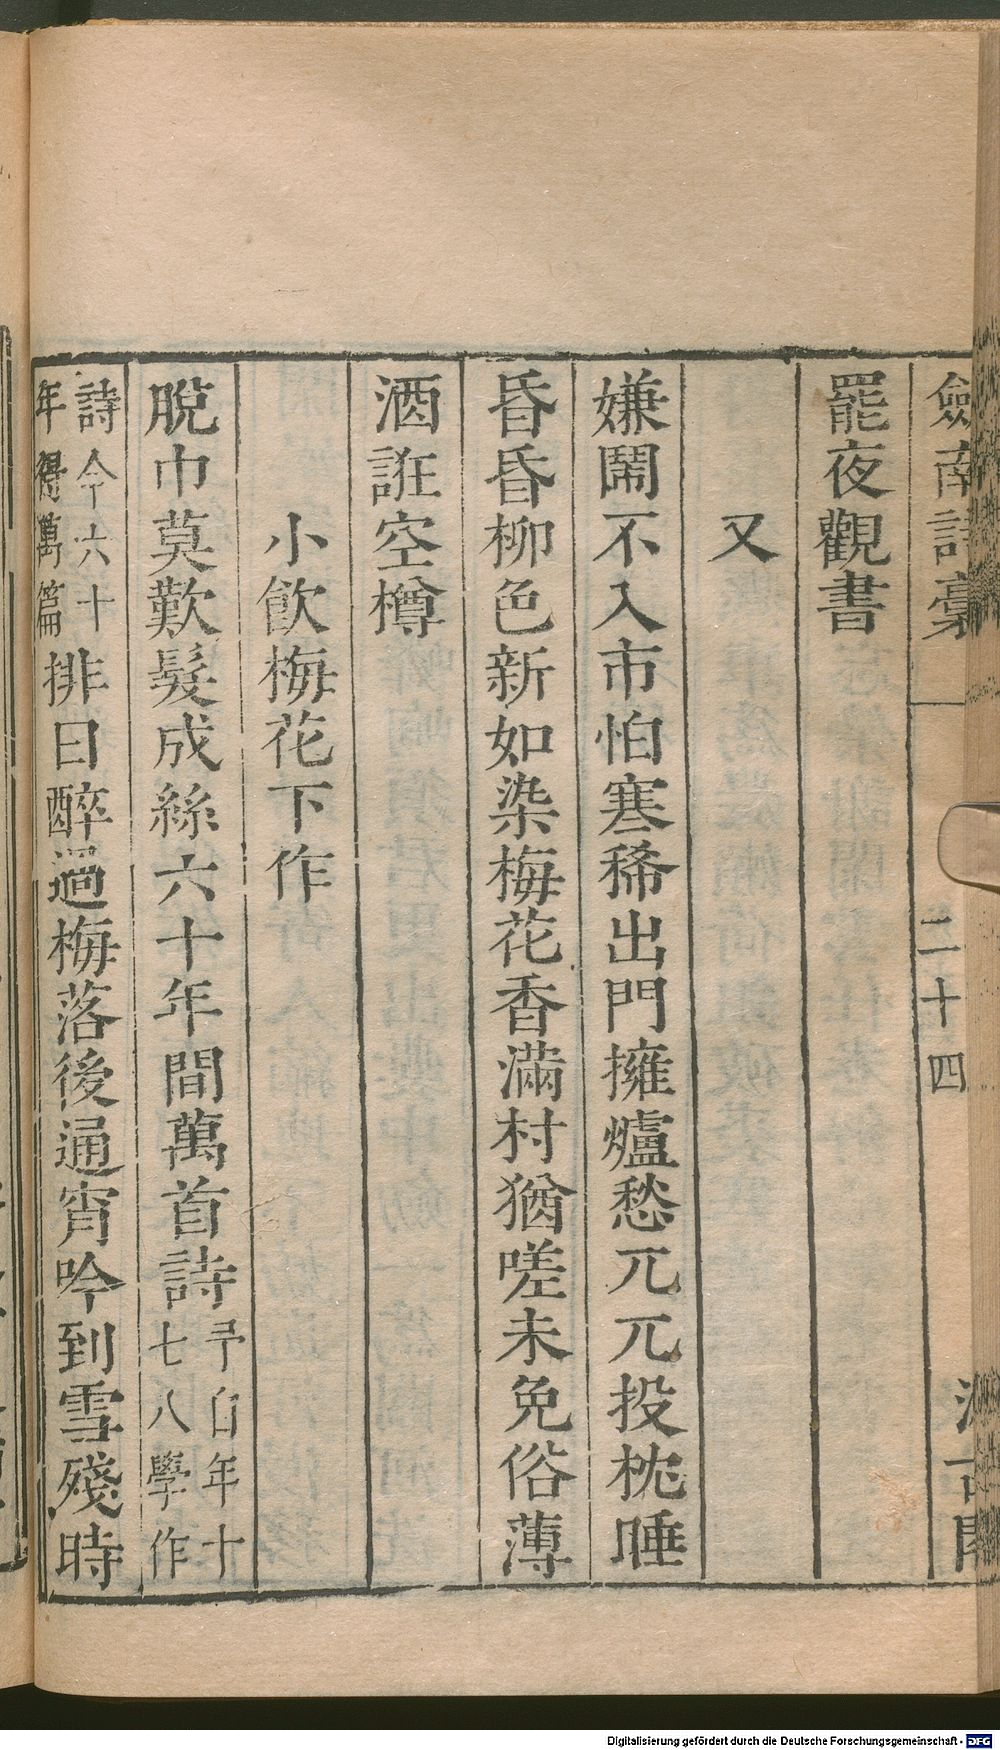 劍南詩稾 二十四 汲古閣
罷夜觀書
又
嫌鬧不入市怕寒稀出門擁爐愁兀兀投枕睡
昏昏柳色新如染梅花香滿村猶嗟未免俗薄
酒誑空樽
小飲梅花下作
脫巾莫歎髮成絲六十年間萬首詩予自年十
七八學作
詩今六十
年得萬篇排日醉過梅落後通宵吟到雪殘時
Digitalisierung gefördert durch die Deutsche Forschungsgemeinschaft - DFG